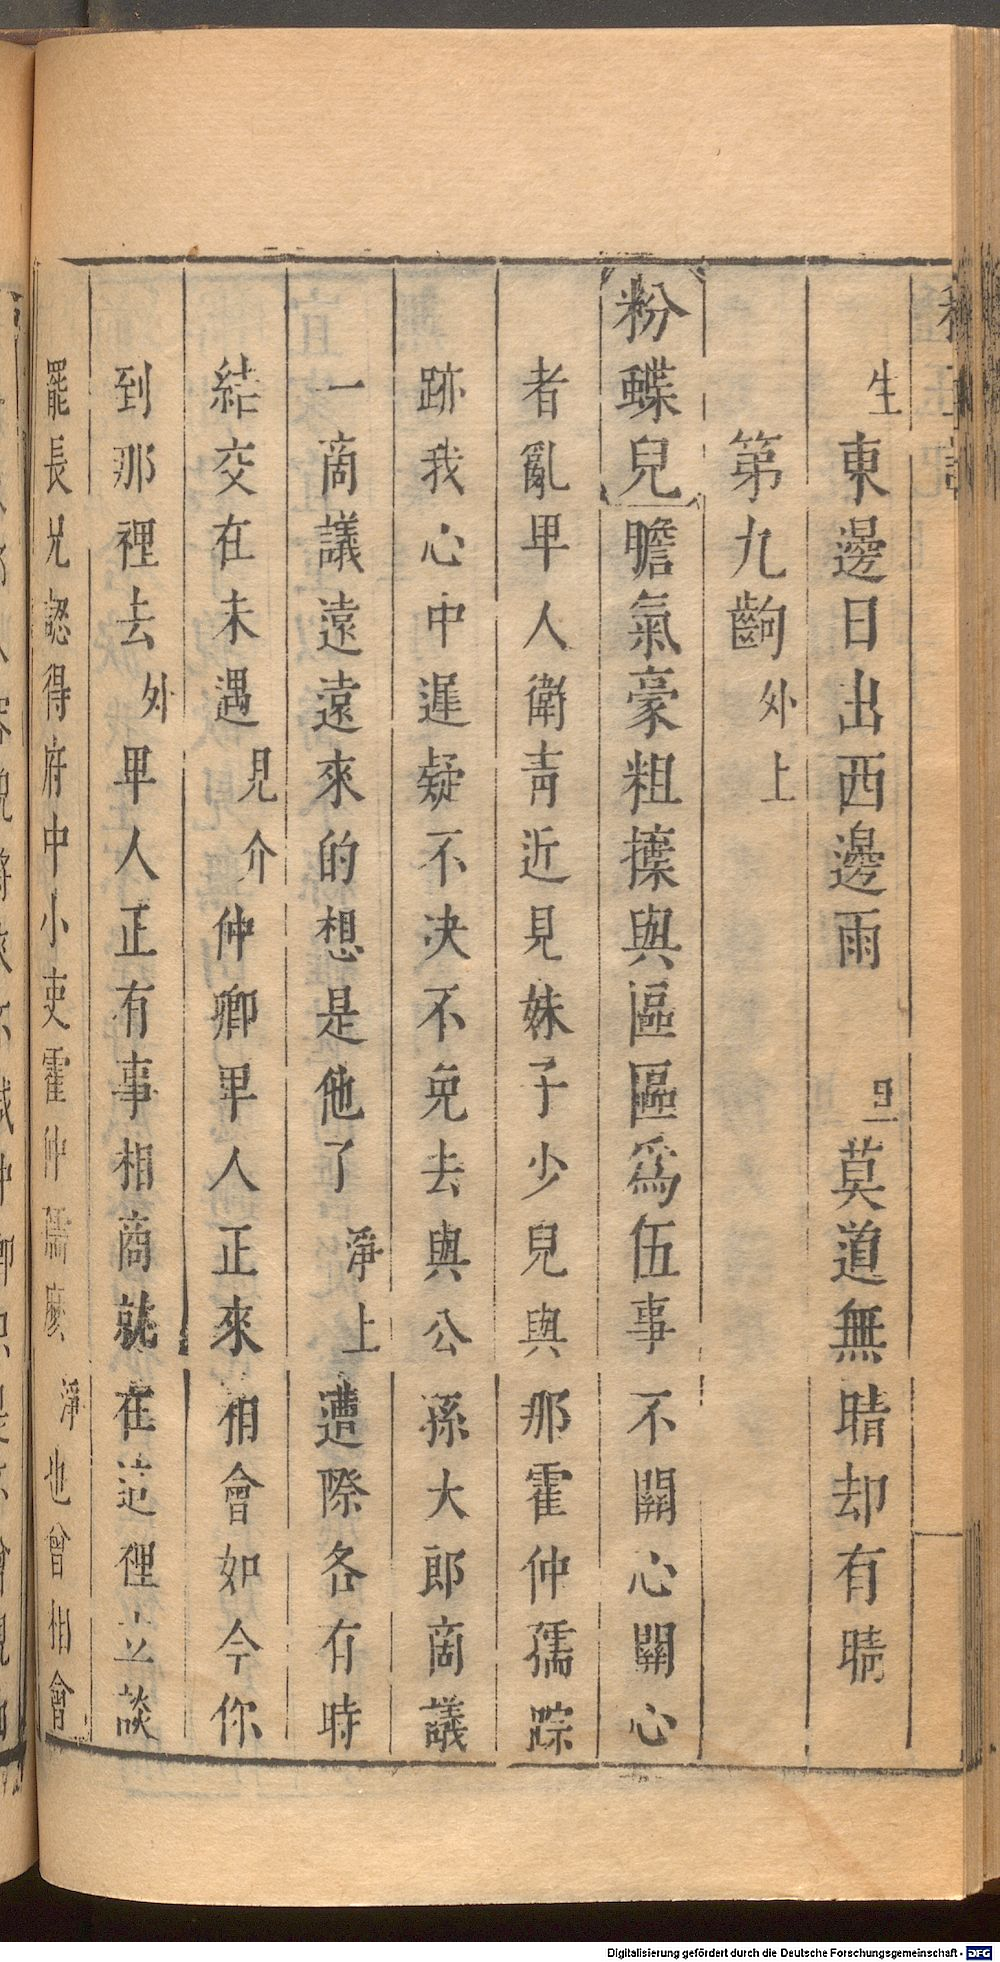 生 東邊日出西邊雨 旦 莫道無晴却有晴
第九齣 外上
粉蝶兒 膽氣豪粗擡與區區爲伍事不關心關心
者亂 卑人衛靑近見妹子少兒與那霍仲孺踪
跡我心中遲疑不决不免去與公孫大郎商議
一商議遠遠來的想是他了 淨上 遭際各有時
結交在未遇 見介 仲卿卑人正來相會如今你
到那裡去 外 卑人正有事相商就在這裡立談
罷長兄認得府中小吏霍仲孺麽 淨 也曾相會
Digitalisierung gefördert durch die Deutsche Forschungsgemeinschaft - DFG